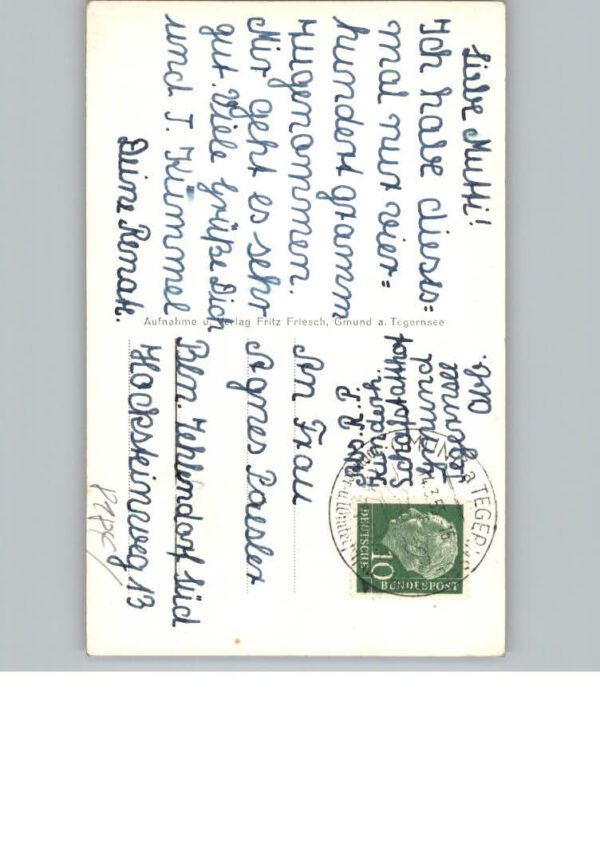 Liebe Mutti!
Ich habe dieses=
mal nur vier=
hundert gramm
zugenommen.
Mir geht es sehr
gut. Viele Grüße Dich
und T. Kümmel
Deine Renate.
Aufnahme u. Verlag Fritz Friesch, Gmund a. Tegernsee
Abs. R. P.
Kinderh.
Schafstatthof
An Frau
Agnes Paesler
Bln. Zehlendorf Süd
Hocksteinweg 13
GMUND a. TEGERNSEE
DEUTSCHE
BUNDESPOST
10